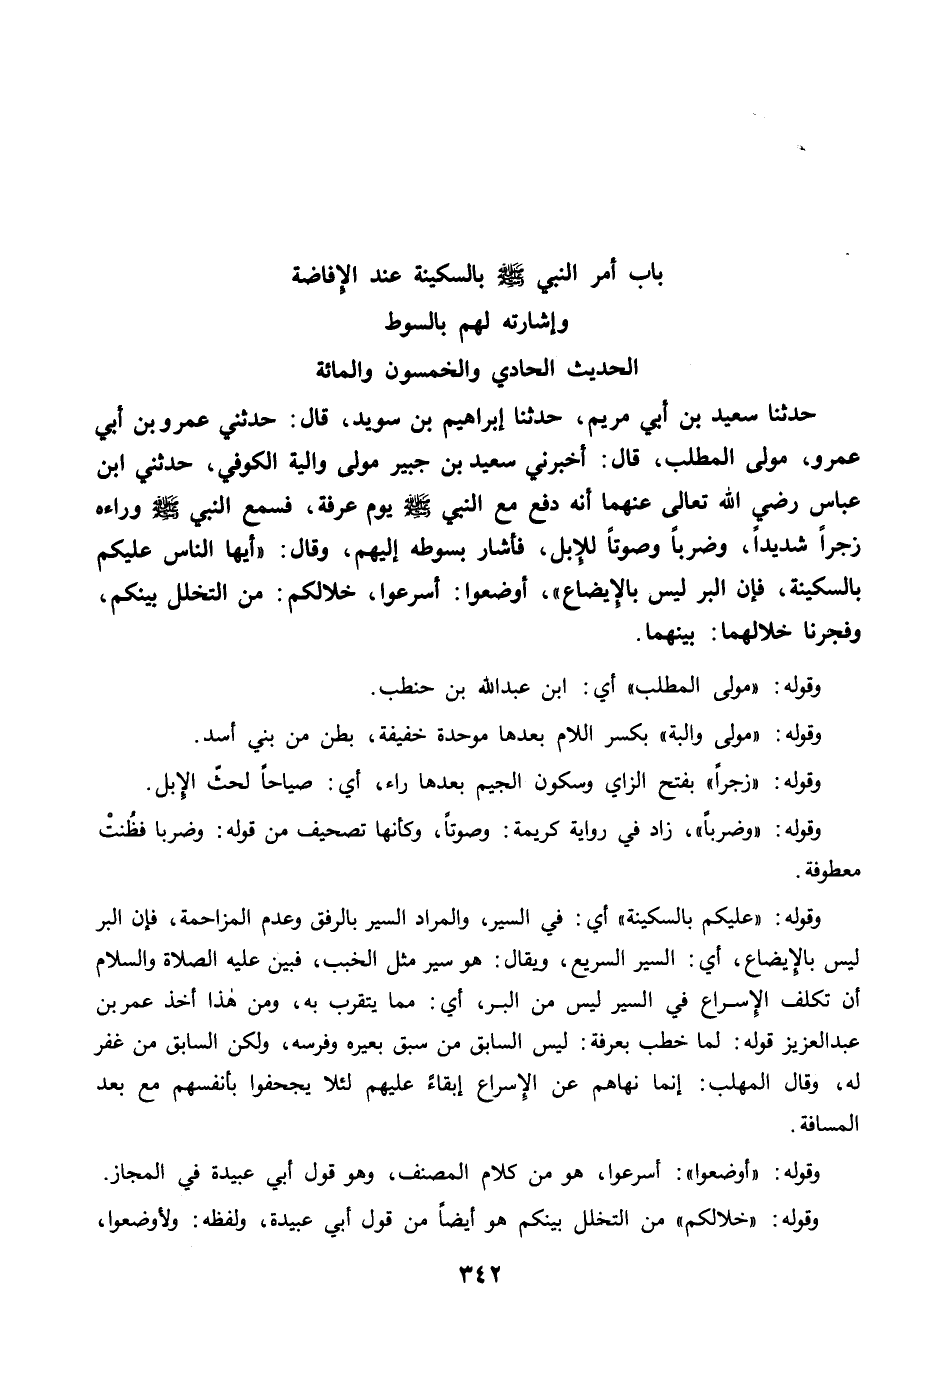 باب أمر النبي ﷺ بالسكينة عند الإفاضة
وإشارته لهم بالسوط
الحديث الحادي والخمسون والمائة
حدثنا سعيد بن أبي مريم، حدثنا إبراهيم بن سويد، قال: حدثني عمرو بن أبي
عمرو، مولى المطلب، قال: أخبرني سعيد بن جبير مولى والية الكوفي، حدثني ابن
عباس رضي الله تعالى عنهما أنه دفع مع النبي ﷺ يوم عرفة، فسمع النبي ﷺ وراءه
زجراً شديداً، وضرباً وصوتاً للإبل، فأشار بسوطه إليهم، وقال: «أيها الناس عليكم
بالسكينة، فإن البر ليس بالإيضاع»، أوضعوا: أسرعوا، خلالكم: من التخلل بينكم،
وفجرنا خلالهما: بينهما.
وقوله: «مولى المطلب» أي: ابن عبدالله بن حنطب.
وقوله: «مولى والبة» بكسر اللام بعدها موحدة خفيفة، بطن من بني أسد.
وقوله: «زجراً» بفتح الزاي وسكون الجيم بعدها راء، أي: صياحاً لحثّ الإبل.
وقوله: «وضرباً»، زاد في رواية كريمة: وصوتاً، وكأنها تصحيف من قوله: وضربا فظُنتْ
معطوفة.
وقوله: «عليكم بالسكينة» أي: في السير، والمراد السير بالرفق وعدم المزاحمة، فإن البر
ليس بالإيضاع، أي: السير السريع، ويقال: هو سير مثل الخبب، فبين عليه الصلاة والسلام
أن تكلف الإسراع في السير ليس من البر، أي: مما يتقرب به، ومن هٰذا أخذ عمر بن
عبدالعزيز قوله: لما خطب بعرفة: ليس السابق من سبق بعيره وفرسه، ولكن السابق من غفر
له، وقال المهلب: إنما نهاهم عن الإسراع إبقاءً عليهم لئلا يجحفوا بأنفسهم مع بعد
المسافة.
وقوله: «أوضعوا»: أسرعوا، هو من كلام المصنف، وهو قول أبي عبيدة في المجاز.
وقوله: «خلالكم» من التخلل بينكم هو أيضاً من قول أبي عبيدة، ولفظه: ولأوضعوا،
٣٤٢